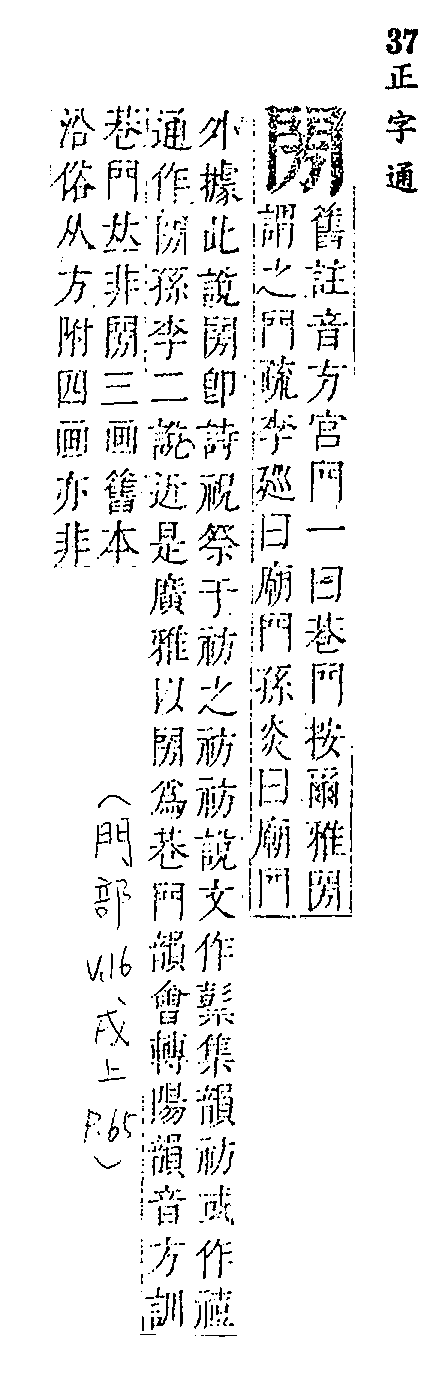 37正字通
閍
舊註音方宮門一曰巷門按爾雅閍
謂之門疏李廵曰廟門孫炎曰廟門
外據此說閍卽詩祝祭于祊之祊祊說文作𥛱集韻祊或作
通作閍孫李二說近是廣雅以閍爲巷門韻會轉陽韻音方訓
巷門𠀤非閍三画舊本
沿俗从方附四画亦非
（門部 V.16、戌上 P.65）